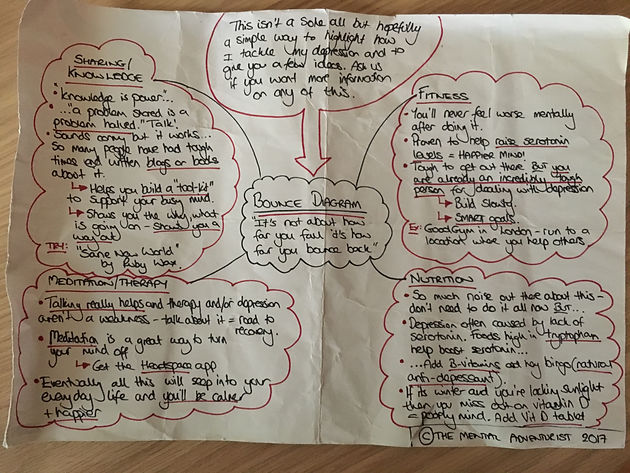 This isn't a solve all but hopefully
a simple way to highlight how
I tackle my depression and to
give you a few ideas. Ask us
if you want more information
on any of this.
SHARING/
KNOWLEDGE
• "Knowledge is power"...
• ..."a problem shared is a
problem halved." Talk.
• Sounds corny but it works...
So many people have had tough
times and written blogs or books
about it.
↳ Helps you build a "tool-kit"
to support your busy mind.
↳ Shows you the why, what
is going on - shows you a
way out
TRY: "Sane New World"
by Ruby Wax.
FITNESS
• You'll never feel worse mentally
after doing it.
• Proven to help raise serotonin
levels = HAPPIER MIND!
• Tough to get out there BUT you
are already an incredibly tough
person for dealing with depression
↳ Build slowly.
↳ SMART goals.
Ex: GoodGym in London - run to a
location where you help others.
BOUNCE DIAGRAM
"It's not about how
far you fall it's how
far you bounce back"
MEDITATION/THERAPY
• Talking really helps and therapy and/or depression
aren't a weakness - talk about it = road to
recovery.
• Meditation is a great way to turn
your mind off
↳ Get the Headspace app
• Eventually all this will seep into your
everyday life and you'll be calmer
+ happier
NUTRITION
• So much noise out there about this -
don't need to do it all now BUT...
• Depression often caused by lack of
serotonin. Foods high in tryptophan
help boost serotonin...
• ...Add B-vitamins and hey bingo (natural
anti-depressant).
• If its winter and you're lacking sunlight
then you miss out on vitamin D
= poorly mind. Add Vit D tablet
© THE MENTAL ADVENTURIST 2017